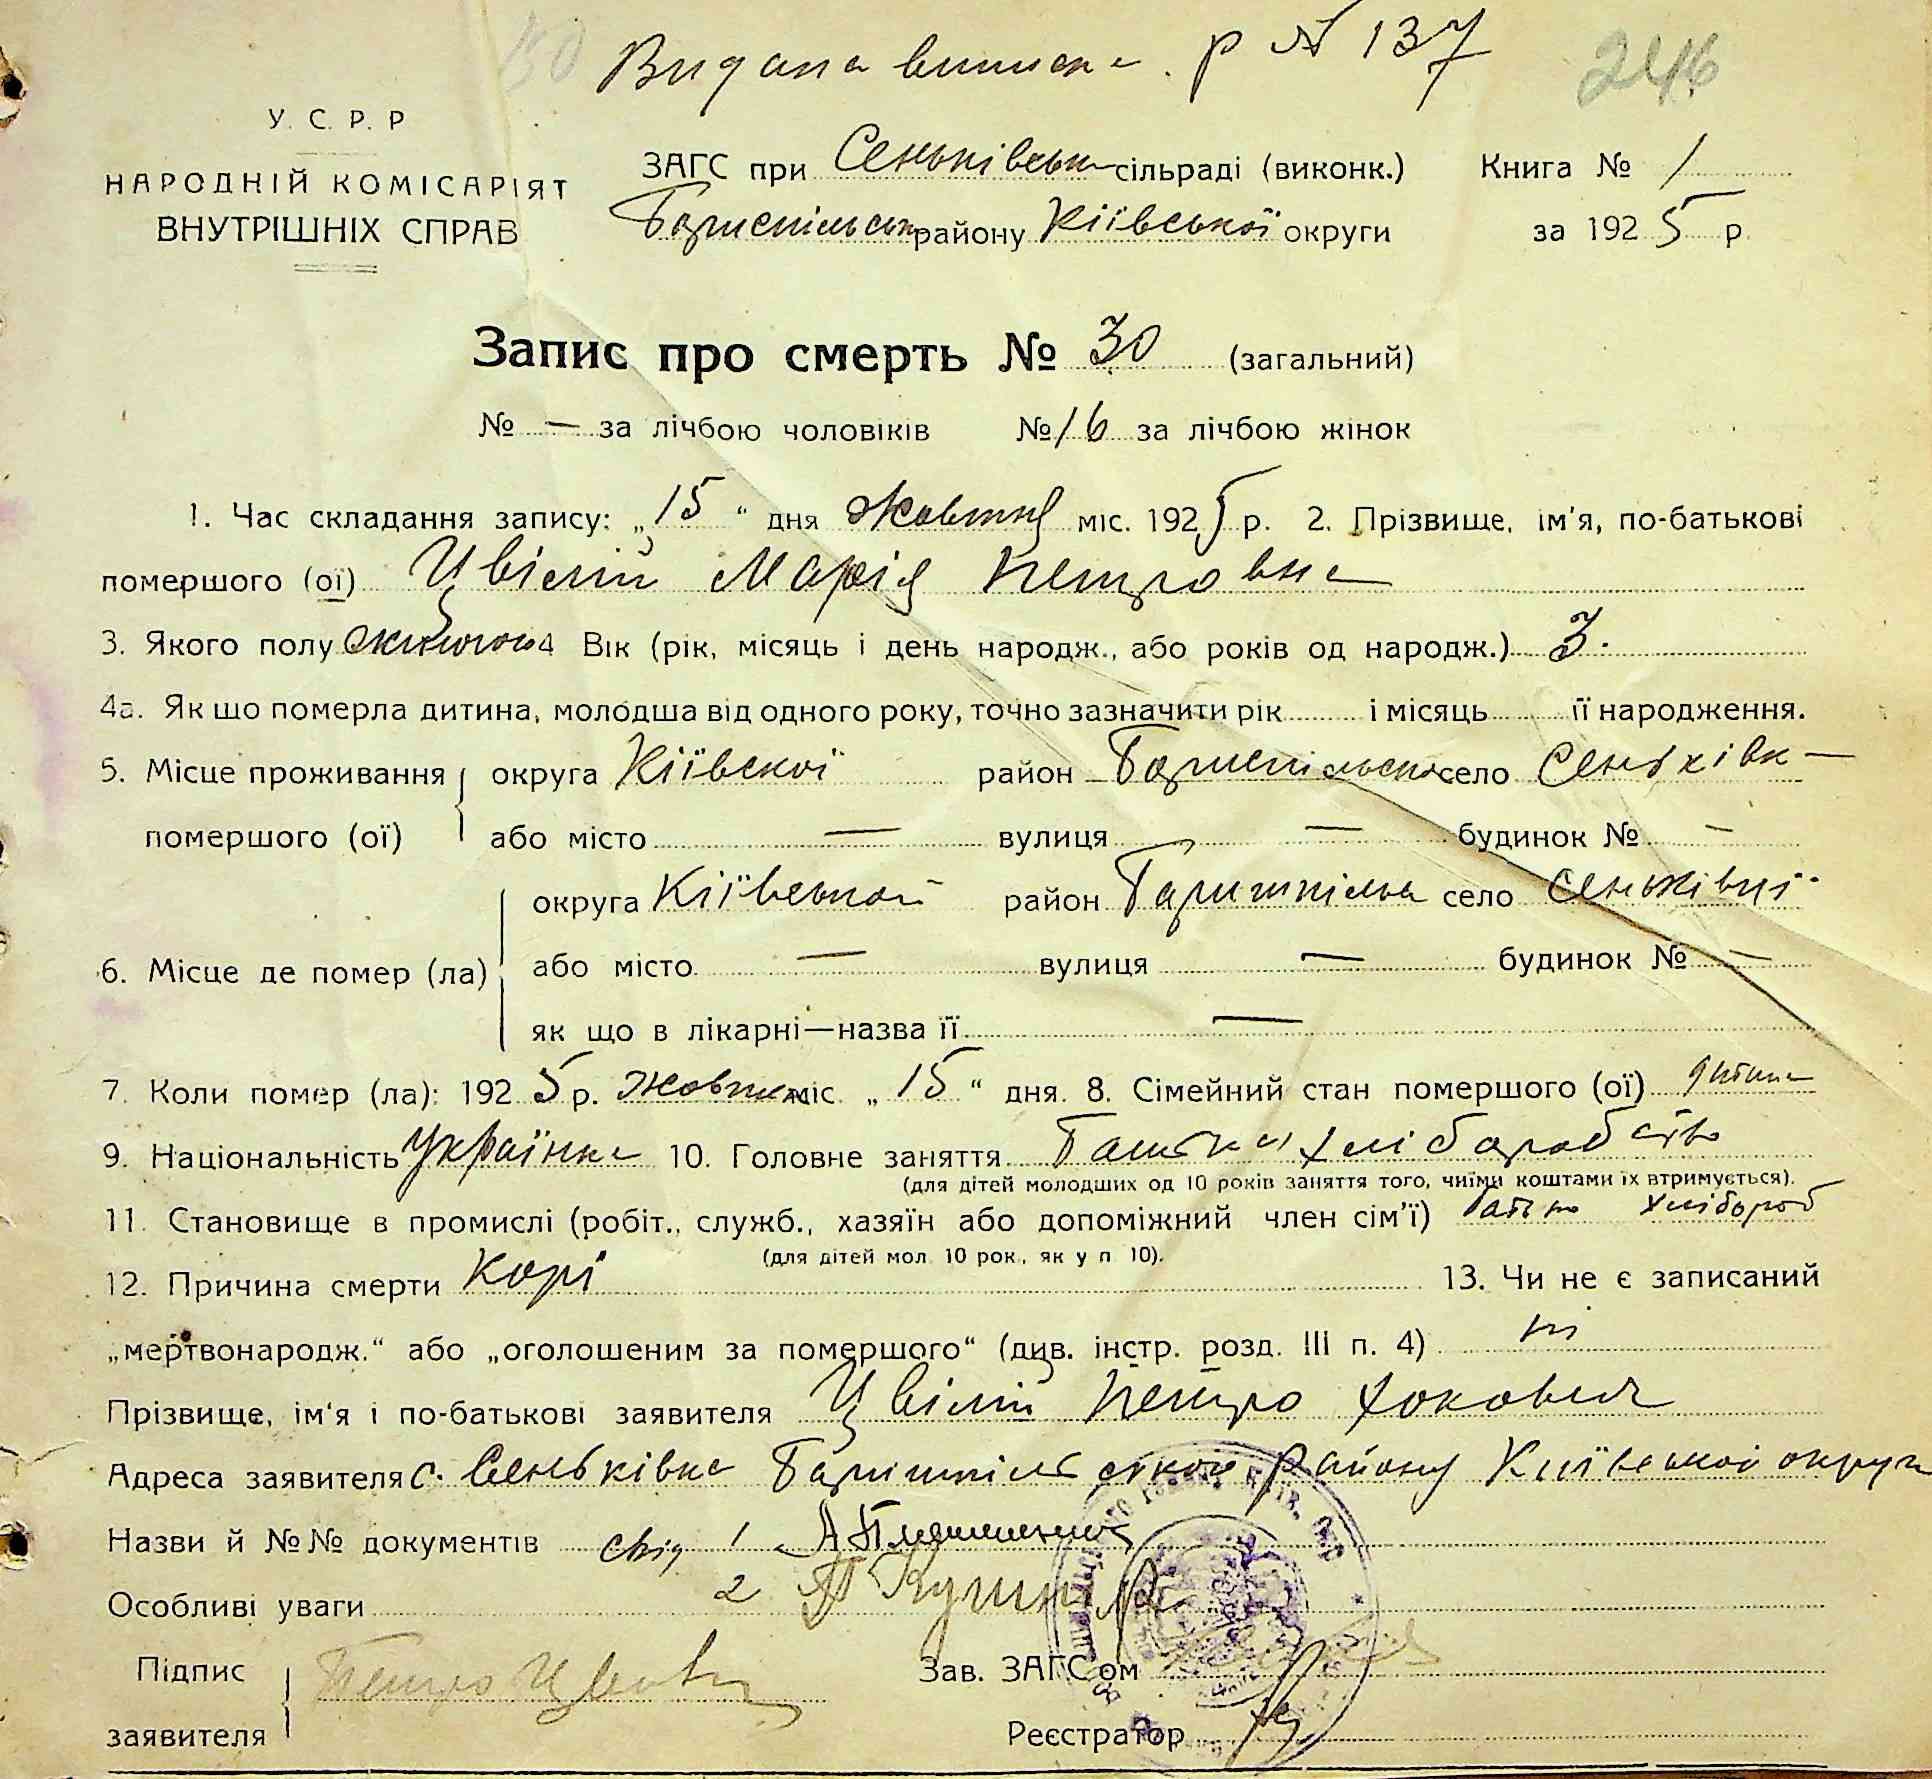 Видана виписка. р № 137
246
У. С. Р. Р
НАРОДНІЙ КОМІСАРІЯТ
ВНУТРІШНІХ СПРАВ
ЗАГС при Сеньківськ сільраді (виконк.)
Бориспільськ району Кіівської округи
Книга № 1
за 1925 р
Запис про смерть № 30 (загальний)
№ — за лічбою чоловіків № 16 за лічбою жінок
1. Час складання запису: „15“ дня Жовтня міс. 1925 р. 2. Прізвище, ім'я, по-батькові
помершого (ої) Цвілій Марія Петровна
3. Якого полу жіночого 4 Вік (рік, місяць і день народж., або років од народж.) 3.
4а. Як що померла дитина, молодша від одного року, точно зазначити рік і місяць її народження.
5. Місце проживання округа Кіївскої район Бориспільско село Сеньківк —
помершого (ої) або місто — вулиця — будинок № —
округа Кіївськой район Баришпільс село Сеньківці
6. Місце де помер (ла) або місто — вулиця — будинок № —
як що в лікарні—назва її —
7. Коли помер (ла): 1925 р. Жовтня міс. „15“ дня. 8. Сімейний стан помершого (ої) дитина
9. Національність Українка 10. Головне заняття Батька хліборобство
(для дітей молодших од 10 років заняття того, чиїми коштами їх втримується).
11. Становище в промислі (робіт., служб., хазяїн або допоміжний член сім'ї) батько хлібороб
(для дітей мол. 10 рок., як у п 10).
12. Причина смерти Корі 13. Чи не є записаний
„мертвонародж.“ або „оголошеним за помершого“ (див. інстр. розд. III п. 4) ні
Прізвище, ім'я і по-батькові заявителя Цвілій Петро
Адреса заявителя с. Сеньківка Баришпільською району Київської округи
Назви й №№ документів свід 1
Особливі уваги 2 Кушнір
Підпис Петро
заявителя
Зав. ЗАГС'ом
Реєстратор